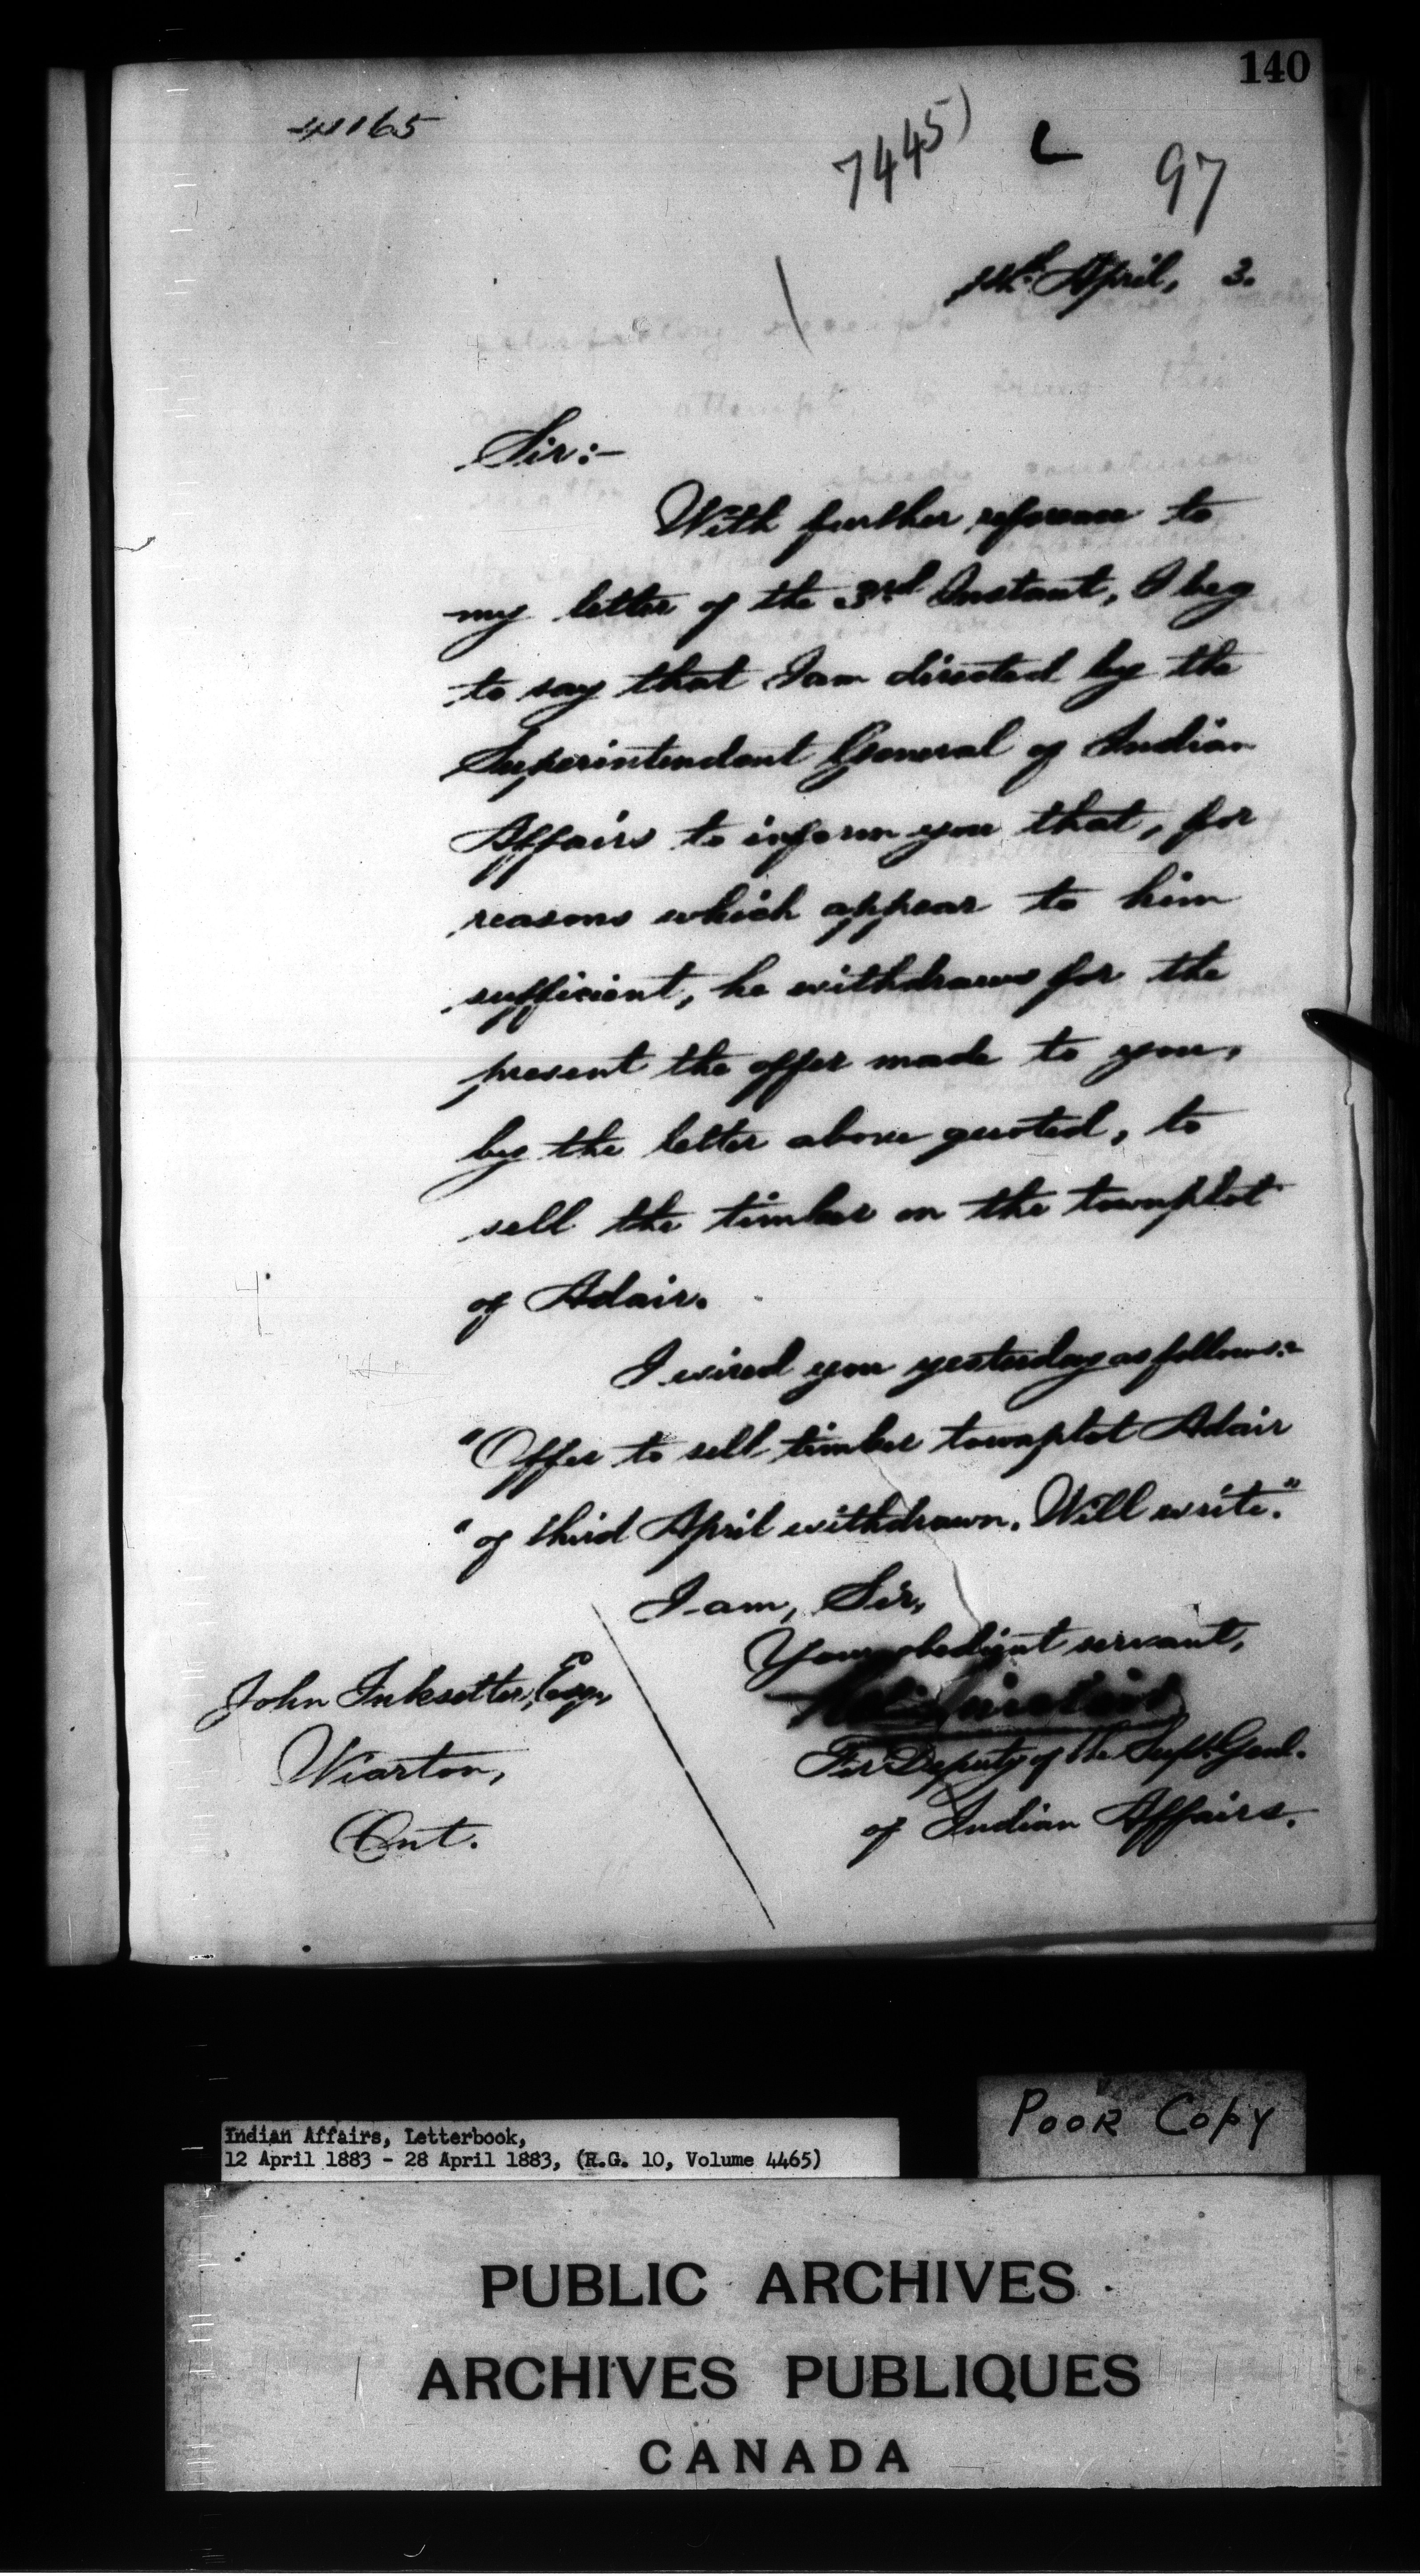 140
41165
7445)
L
97
14th April, 3.
Sir:-
With further reference to
my letter of the 3rd Instant, I beg
to say that I am directed by the
Superintendent General of Indian
Affairs to inform you that, for
reasons which appear to him
sufficient, he withdraws for the
present the offer made to you,
by the letter above quoted, to
sell the timber on the townplot
of Adair.
I wired you yesterday as follows:-
"Offer to sell timber townplot Adair
"of third April withdrawn. Will write."
I am, Sir,
Your obedient servant,
For Deputy of the Supt. Genl.
of Indian Affairs.
John Inksetter, Esq,
Wiarton,
Ont.
Poor Copy
Indian Affairs, Letterbook,
12 April 1883 - 28 April 1883, (R.G. 10, Volume 4465)
PUBLIC ARCHIVES
ARCHIVES PUBLIQUES
CANADA